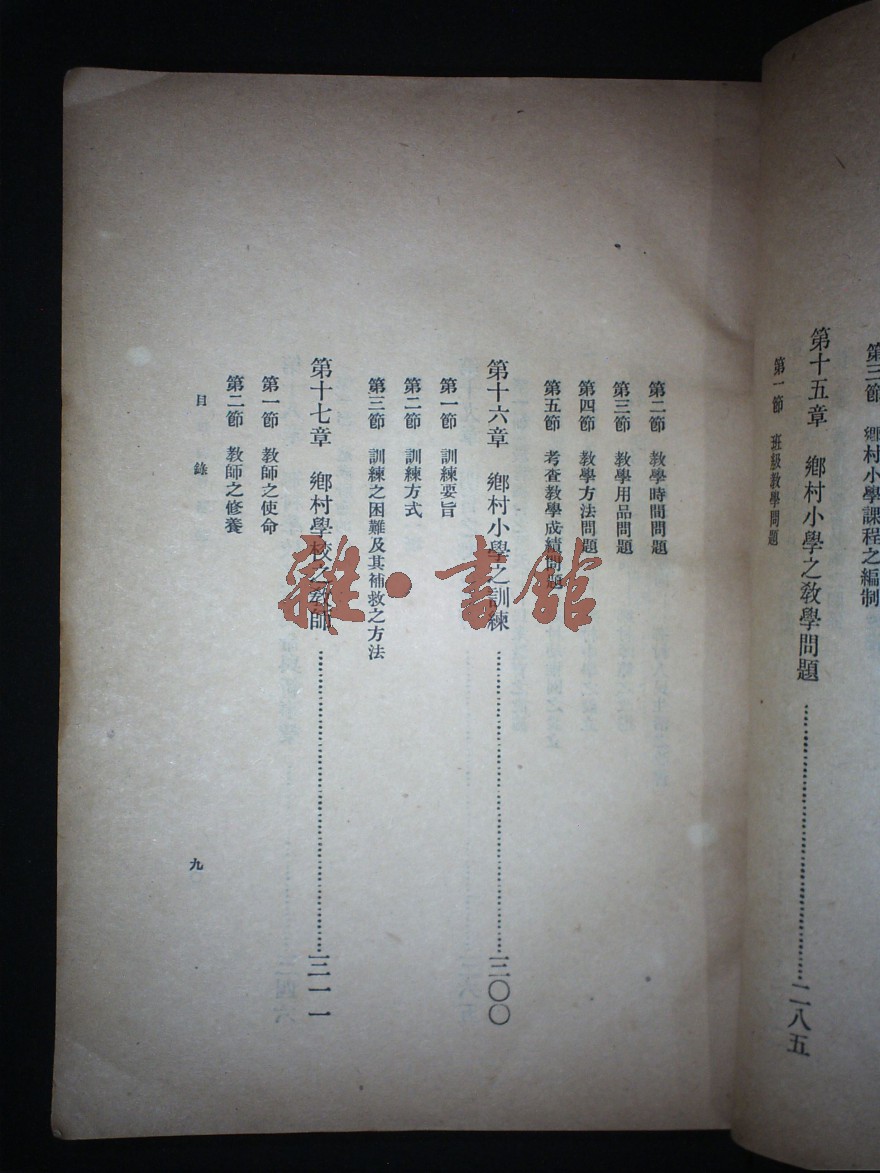 第三節　鄉村小學課程之編制
第十五章　鄉村小學之教學問題……二八五
第一節　班級教學問題
第二節　教學時間問題
第三節　教學用品問題
第四節　教學方法問題
第五節　考查教學成績問題
第十六章　鄉村小學之訓練……三〇〇
第一節　訓練要旨
第二節　訓練方式
第三節　訓練之困難及其補救之方法
第十七章　鄉村學校之教師……三一一
第一節　教師之使命
第二節　教師之修養
目錄　九
雜·書館